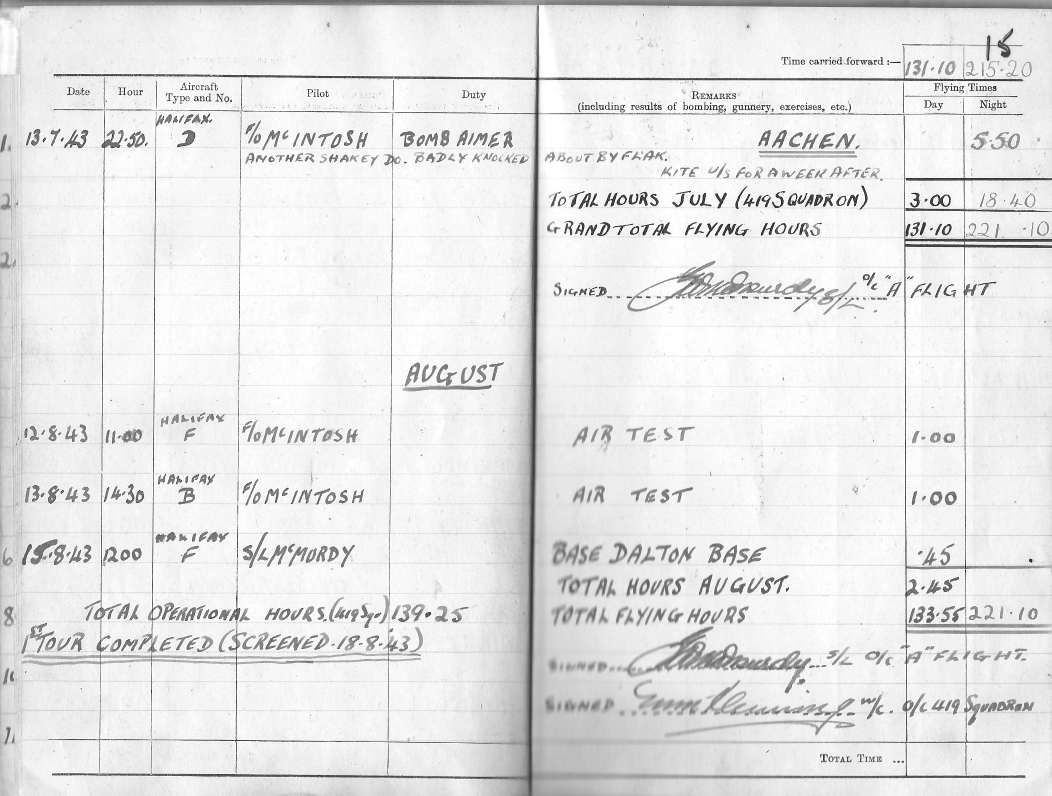 15
Time carried forward :— 131·10 215·20
Date Hour Aircraft Type and No. Pilot Duty REMARKS (including results of bombing, gunnery, exercises, etc.) Flying Times Day Night
13.7.43 22.50. HALIFAX D F/O McINTOSH BOMB AIMER AACHEN. 5.50
ANOTHER SHAKEY DO. BADLY KNOCKED ABOUT BY FLAK.
KITE U/S FOR A WEEK AFTER.
TOTAL HOURS JULY (419 SQUADRON) 3·00 18·40
GRAND TOTAL FLYING HOURS 131·10 221·10
SIGNED S/L. O/C "A" FLIGHT
AUGUST
12·8·43 11·00 HALIFAX F F/O McINTOSH AIR TEST 1·00
13·8·43 14·30 HALIFAX B F/O McINTOSH AIR TEST 1·00
15·8·43 1200 HALIFAX F S/L McMORDY BASE DALTON BASE ·45
TOTAL HOURS AUGUST. 2·45
TOTAL OPERATIONAL HOURS. (419 Sq.) 139·25 TOTAL FLYING HOURS 133·55 221·10
1ST TOUR COMPLETED (SCREENED. 18·8·43)
SIGNED S/L O/C "A" FLIGHT.
SIGNED W/C. O/C 419 SQUADRON
TOTAL TIME ...